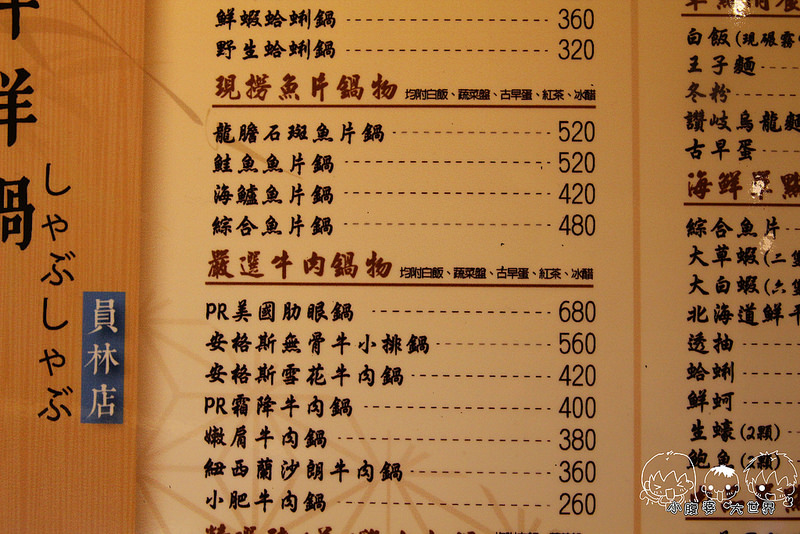 鮮鍋
しゃぶしゃぶ
員林店
鮮蝦蛤蜊鍋 360
野生蛤蜊鍋 320
現撈魚片鍋物 均附白飯、蔬菜盤、古早蛋、紅茶、冰醋
龍膽石斑魚片鍋 520
鮭魚魚片鍋 520
海鱸魚魚片鍋 420
綜合魚片鍋 480
嚴選牛肉鍋物 均附白飯、蔬菜盤、古早蛋、紅茶、冰醋
PR美國肋眼鍋 680
安格斯無骨牛小排鍋 560
安格斯雪花牛肉鍋 420
PR霜降牛肉鍋 400
嫩肩牛肉鍋 380
紐西蘭沙朗牛肉鍋 360
小肥牛肉鍋 260
白飯(現碾
王子麵
冬粉
讚岐烏龍麵
古早蛋
海鮮單點
綜合魚片
大草蝦(二隻
大白蝦(六隻
北海道鮮干
透抽
蛤蜊
鮮蚵
生蠔(2顆)
鮑魚(2顆)
小腹婆 大世界